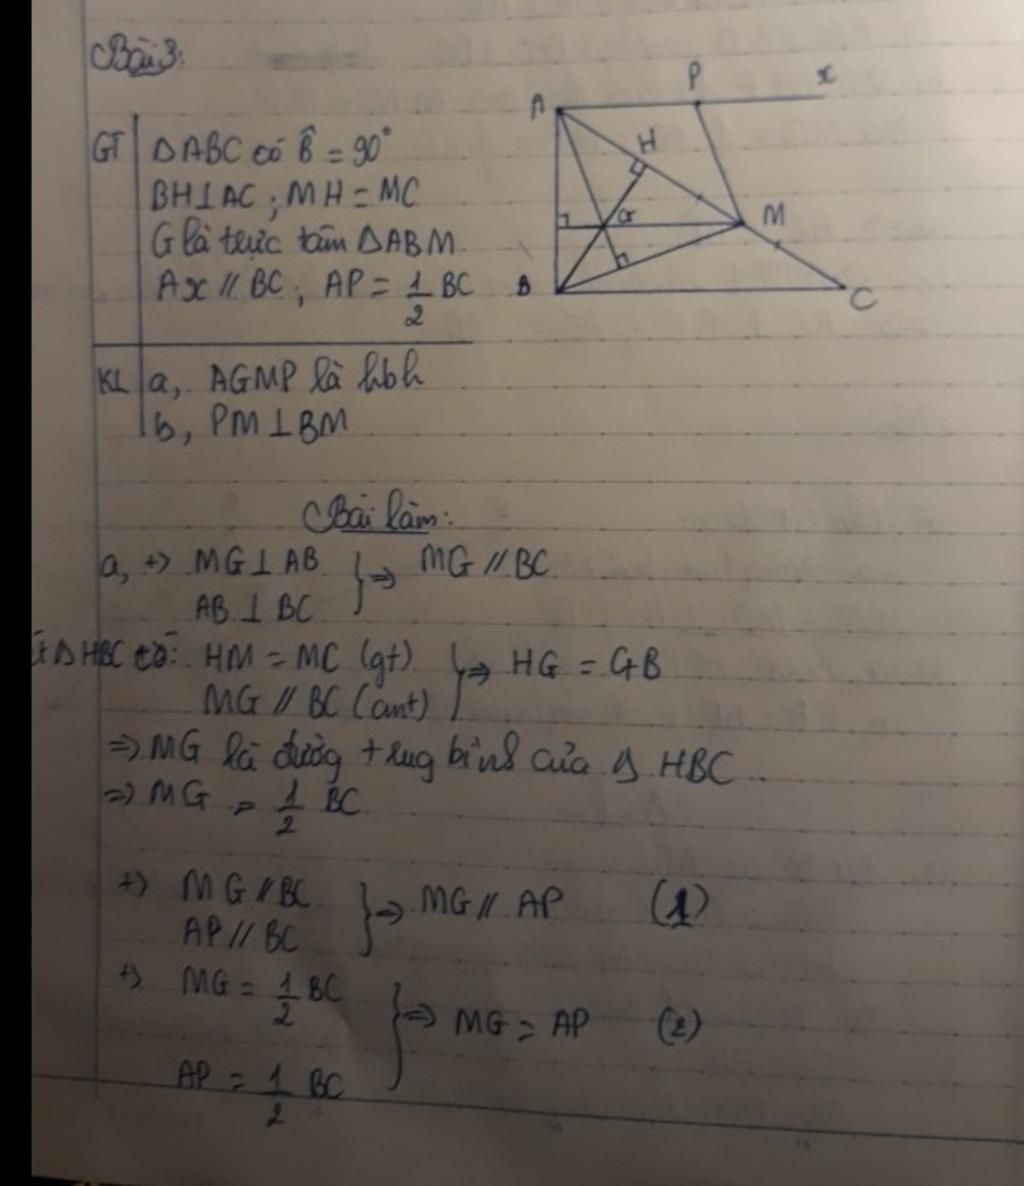 Bài 3:
GT ΔABC có B̂ = 90°
BH⊥AC ; MH = MC
G là trực tâm ΔABM
Ax // BC ; AP = 1/2 BC
KL a, AGMP là hbh
b, PM ⊥ BM
A P x
H
G M
B C
Bài làm:
a, +> MG ⊥ AB
AB ⊥ BC } => MG // BC
ΔHBC có: HM = MC (gt)
MG // BC (cmt) } => HG = GB
=> MG là đường trung bình của Δ HBC
=> MG = 1/2 BC
+> MG // BC
AP // BC } => MG // AP (1)
+> MG = 1/2 BC
AP = 1/2 BC } => MG = AP (2)